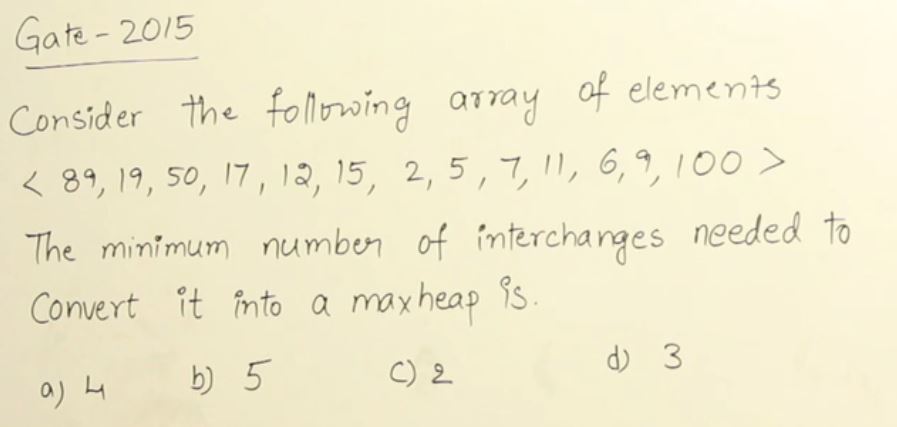 Gate - 2015
Consider the following array of elements
< 89, 19, 50, 17, 12, 15, 2, 5, 7, 11, 6, 9, 100 >
The minimum number of interchanges needed to
Convert it into a maxheap is.
a) 4 b) 5 c) 2 d) 3